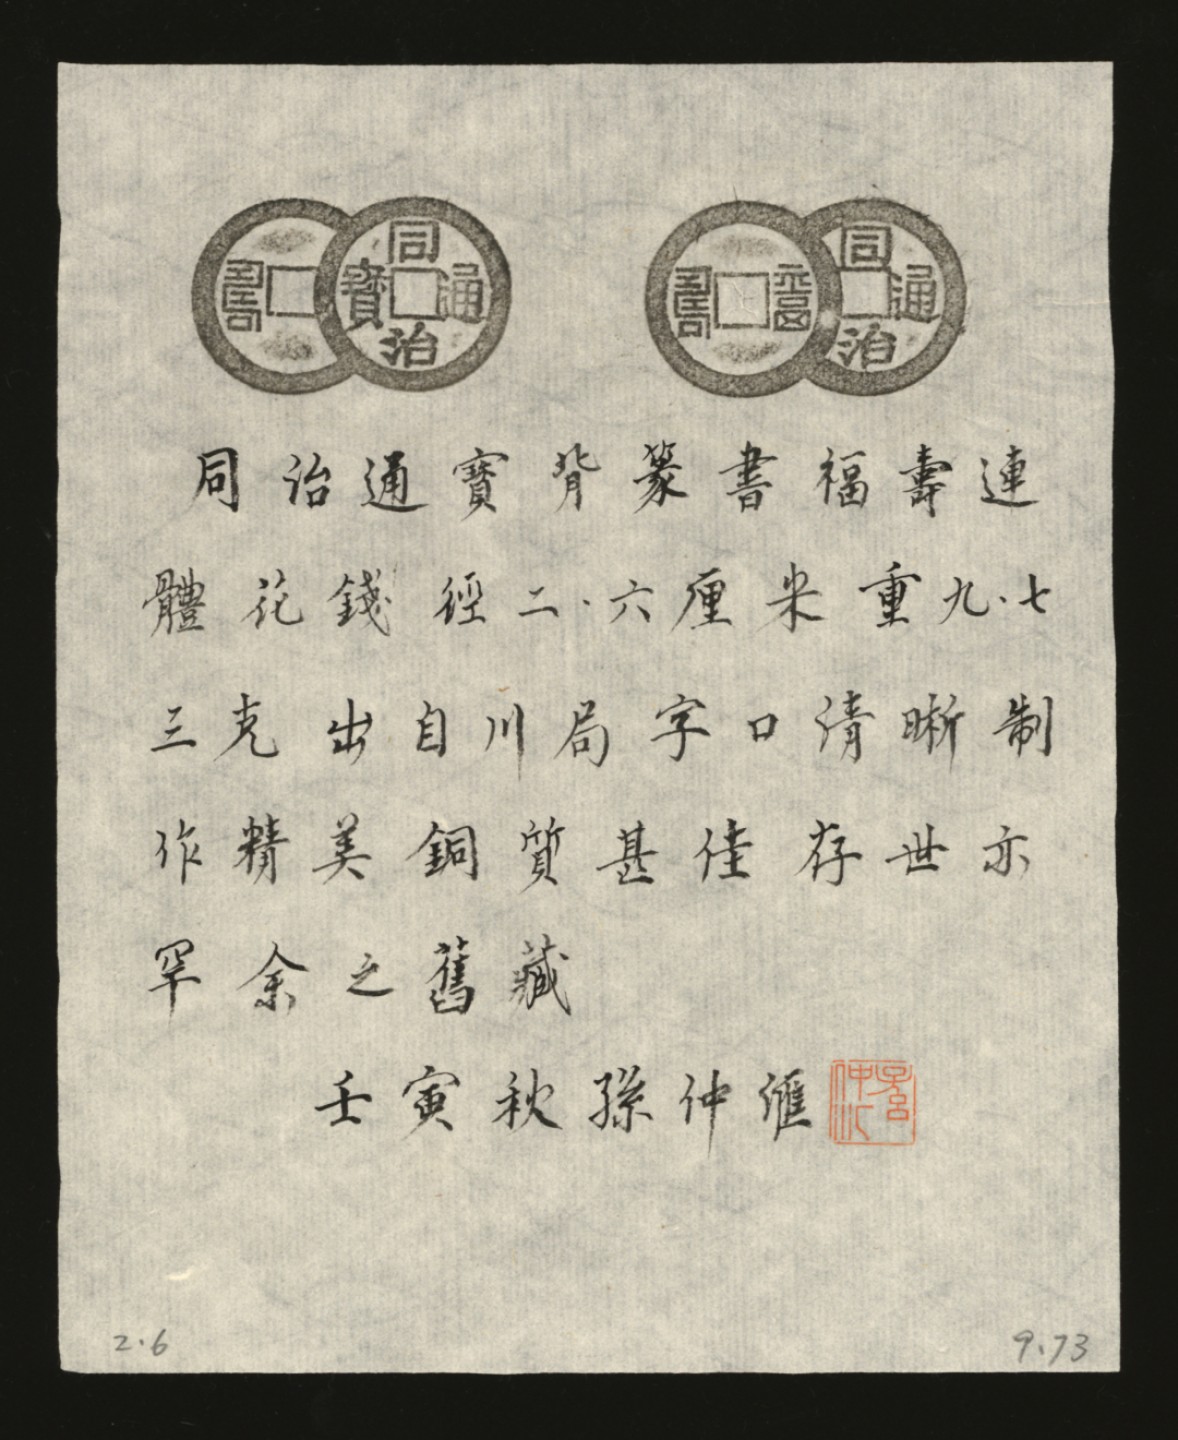 同治通寶
壽
福壽
同治通
同治通寶背篆書福壽連
體花錢徑二·六厘米重九·七
三克出自川局字口清晰制
作精美銅質甚佳存世亦
罕余之舊藏
壬寅秋孫仲匯
孫仲汇
2·6
9.73